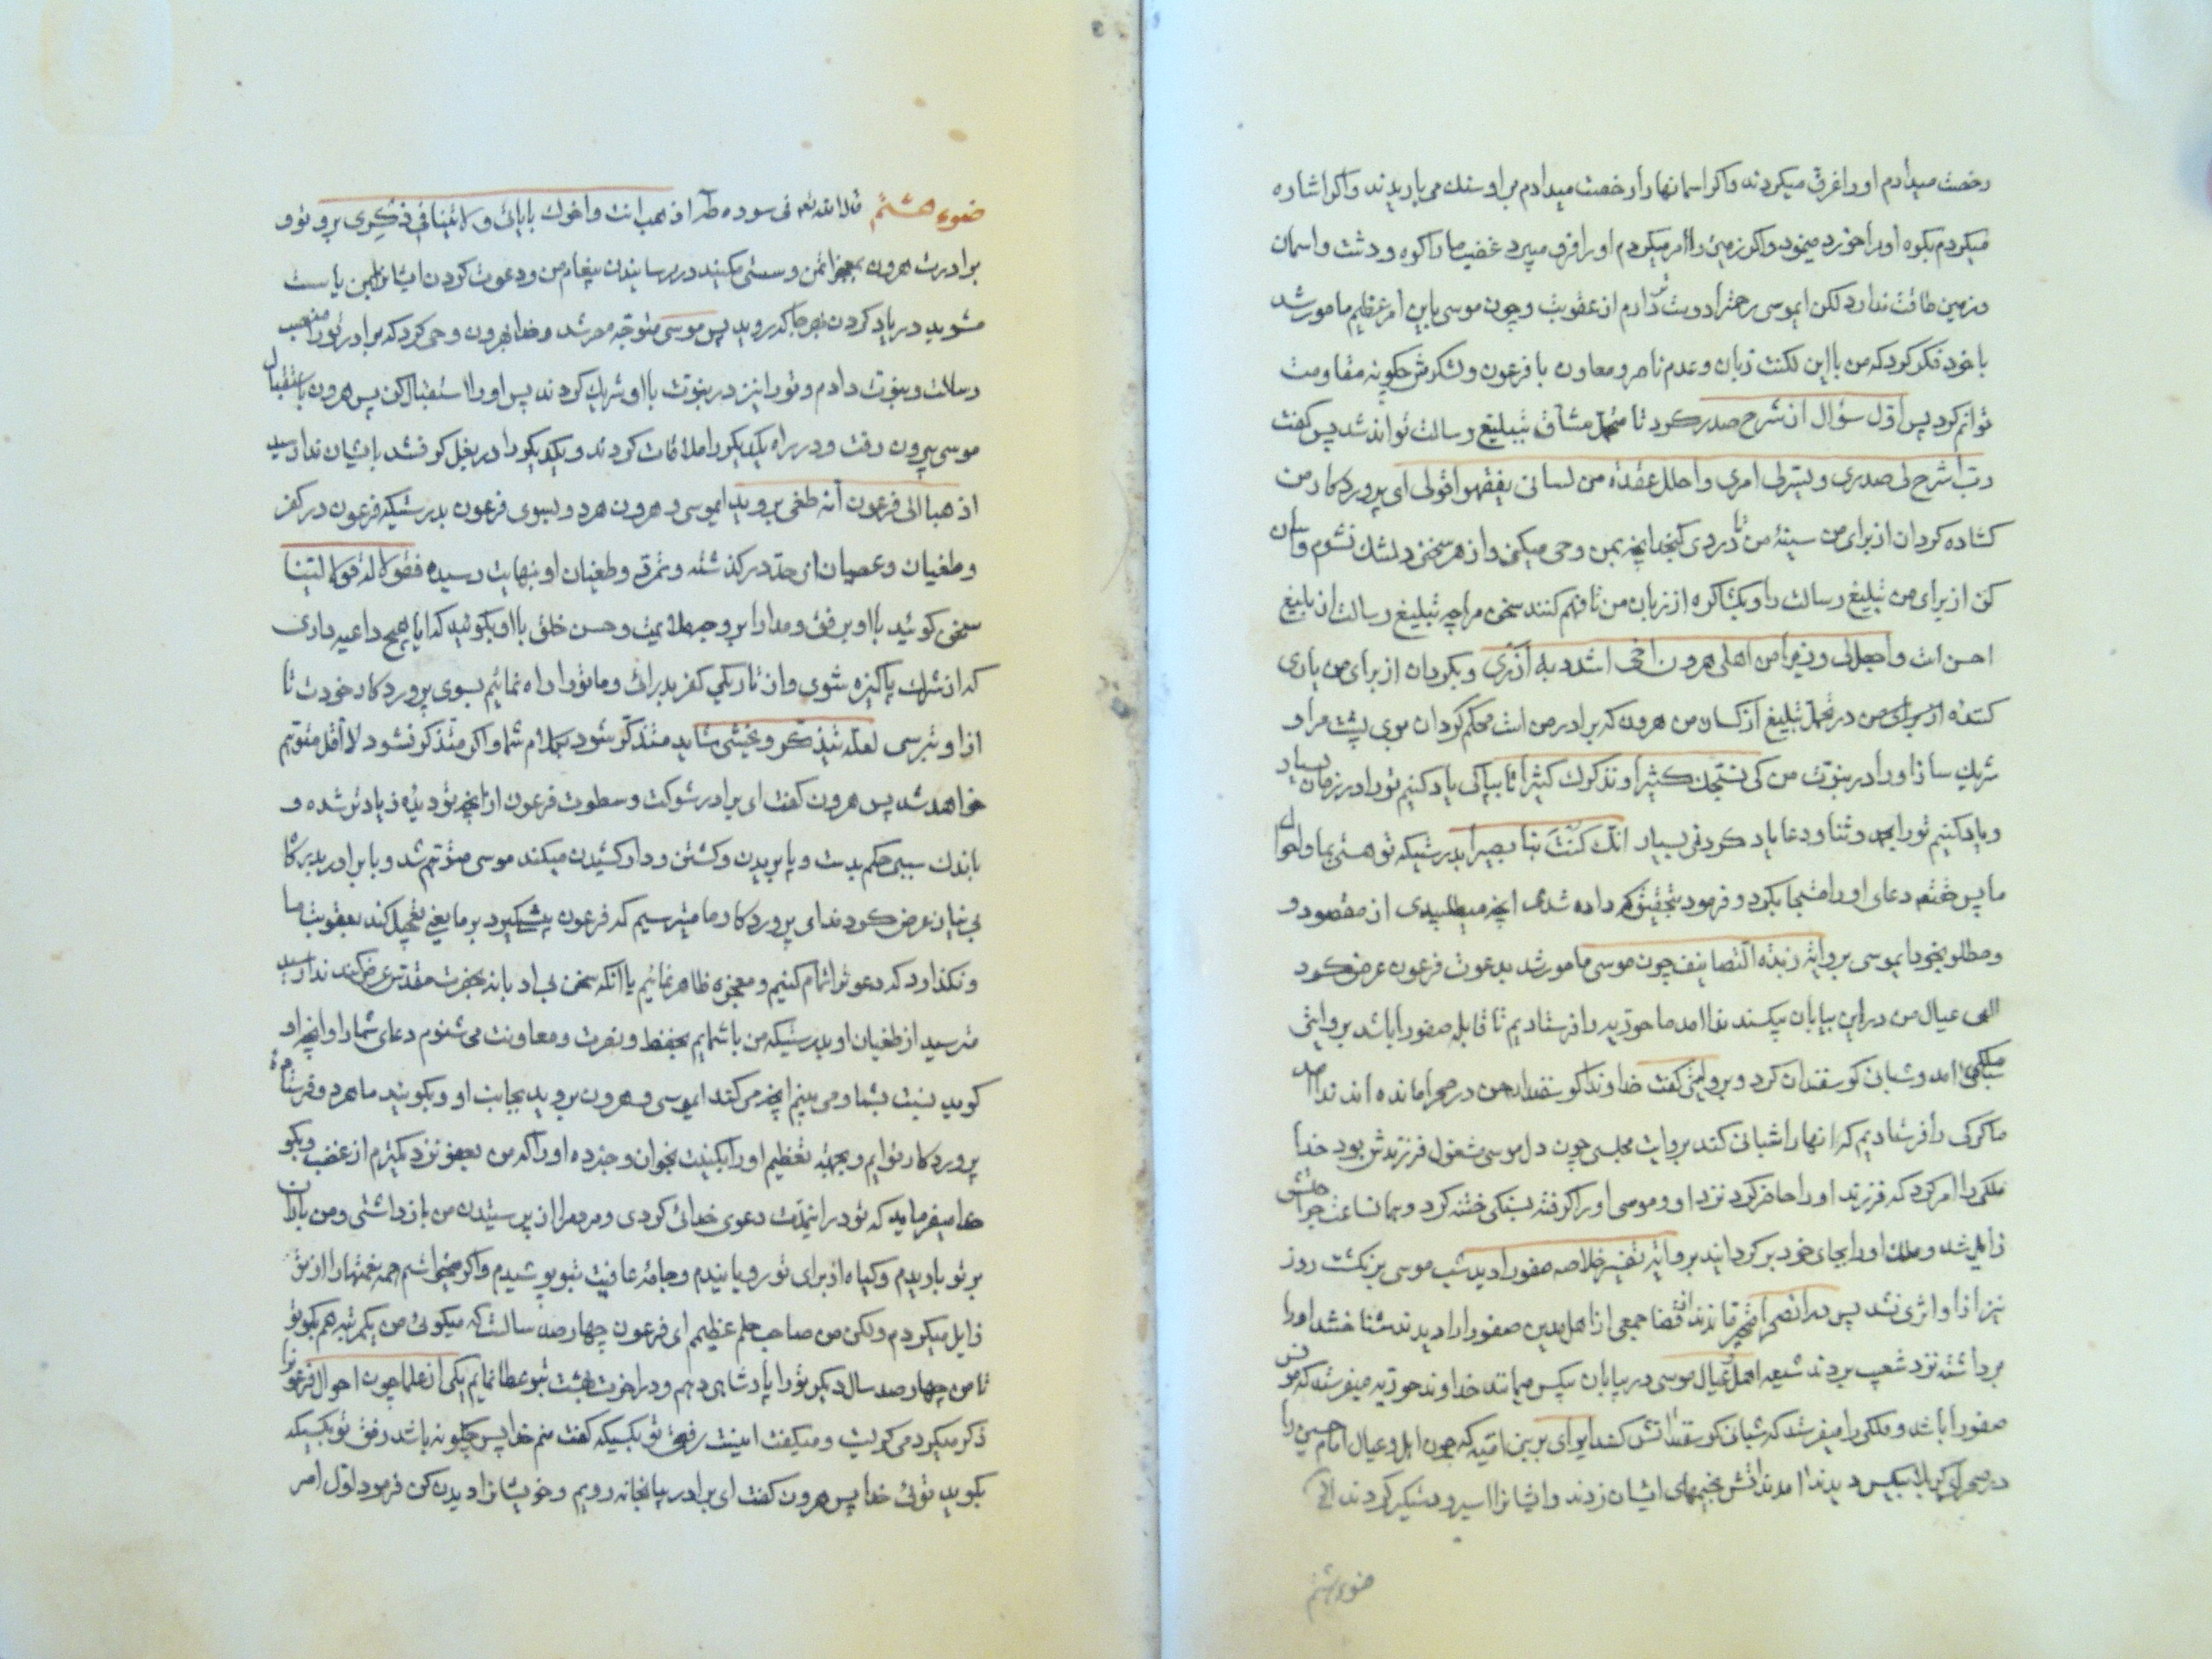 رخصت میدادم او را غرق میکردند و اکر اسمانها را رخصت میدادم بر او سنك می باریدند و اکر اشاره
میکردم بکوه او را خورد مینمود و اکر زمین را امر میکردم او را فرو میبرد غضب ما را کوه و دشت و اسمان
و زمین طاقت ندارد لکن ایموسی رحمت را دوست تر دارم از عقوبت و چون موسی باین امر عظیم مامور شد
با خود فکر کرد که من با این لکنت زبان و عدم ناصر و معاون با فرعون و لشکرش چکونه مقاومت
توانم کرد پس اول سؤال از شرح صدر کرد تا متحمل مشاق تبلیغ رسالت تواند شد پس کفت
رب اشرح لی صدری و یسر لی امری و احلل عقدة من لسانی یفقهوا قولی ای پروردکار من
کشاده کردان از برای من سینهٔ من تا در وی کنجد انچه بمن وحی میکنی و از هر سخنی دلتنك نشوم و اسان
کن از برای من تبلیغ رسالت را و بکشا کره از زبان من تا فهم کنند سخن مرا چه تبلیغ رسالت از بلیغ
احسن است و اجعل لی وزیرا من اهلی هرون اخی اشدد به ازری و بکردان از برای من یاری
کننده از برای من در تحمل تبلیغ از کسان من هرون که برادر من است محکم کردان بوی پشت مرا و
شریك ساز او را در نبوت من کی نسبحك کثیرا و نذکرك کثیرا تا بپاکی یاد کنیم تو را در زمان بسیار
و یاد کنیم تو را بحمد و ثنا و دعا یاد کردنی بسیار انك کنت بنا بصیرا بدرستیکه تو هستی بما و احوال
ما پس حقتعم دعای او را مستجاب کرد و فرمود بتحقیق که داده شدی انچه میطلبیدی از مقصود و
و مطلوب خود ایموسی بروایه زبدة التصانیف چون موسی مامور شد بدعوت فرعون عرض کرد
الهی عیال من در این بیابان بیکسند ندا امد ما حوریه را فرستادیم تا قابله صفورا باشد بروایتی
ملکی امد و شبانی کوسفندان کرد و بروایتی کفت خداوندا کوسفندان من در صحرا مانده اند ندا امد
ما کرکی را فرستادیم که انها را شبانی کند بروایت مجلسی چون دل موسی مشغول فرزندش بود خدا
ملکی را امر کرد که فرزند او را حاضر کرد نزد او و موسی او را کرفته بسنکی ختنه کرد و همانساعت جراحتش
زایل شد و ملك او را بجای خود بر کردانید بروایة تفسیر خلاصه صفورا دید شب موسی بر نکشت روز
نیز از او اثری نشد پس در انصحرا متحیر ماندند از قضا جمعی از اهل مدین صفورا را دیدند شناختند او را
برداشته نزد شعیب بردند شیعه اهل و عیال موسی در بیابان بیکس میمانند خداوند حوریه میفرستد که مونس
صفورا باشد و ملکی را میفرستد که شبانی کوسفندانش کند ایوای بر بنی امیه که چون اهل و عیال امام حسین را
در صحرای کربلا بیکس دیدند امدند اتش بخیمهای ایشان زدند و ایشانرا اسیر و دستکیر کردند الخ
ضوء هشتم
ضوء هشتم قال الله تعم فی سوره طه اذهب انت و اخوك بایاتی و لا تنیا فی ذکری برو تو و
برادرت هرون بمعجزات من و سستی مکنید در رسانیدن پیغام من و دعوت کردن ایشان بدین یا سست
مشوید در یاد کردن من هر جا که روید پس موسی متوجه مصر شد و خدا بهرون وحی کرد که برادر تو را منصب
رسالت و نبوت دادم و تو را نیز در نبوت با او شریك کردند پس او را استقبال کن پس هرون باستقبال
موسی بیرون رفت و در راه یکدیکر را ملاقات کردند و یکدیکر را در بغل کرفتند بایشان ندا رسید
اذهبا الی فرعون انه طغی بروید ایموسی و هرون هر دو بسوی فرعون بدرستیکه فرعون در کفر
و طغیان و عصیان از حد در کذشته و تمرد و طغیان او بنهایت رسیده فقولا له قولا لینا
سخن کوئید با او برفق و مدارا بر وجه ملایمت و حسن خلق با او بکوئید که ایا هیچ داعیه داری
که از شرك پاکیزه شوی و از تاریکی کفر بدرائی و ما تو را راه نمائیم بسوی پروردکار خودت تا
از او بترسی لعله یتذکر و یخشی شاید متذکر شود بکلام شما و اکر متذکر نشود لا اقل متوهم
خواهد شد پس هرون کفت ای برادر شوکت و سطوت فرعون از انچه تو دیدهٔ زیادتر شده و
باندك سببی حکم بدست و پا بریدن و کشتن و دار کشیدن میکند موسی متوهم شد و با برادر بدرکاه
بی نیاز عرض کردند ای پروردکار ما میترسیم که فرعون پیشی کیرد بر ما یعنی تعجیل کند بعقوبت ما
و نکذارد که دعوت را تمام کنیم و معجزه ظاهر نمائیم یا انکه سخن بی ادبانه بحضرت مقدس عرض کند ندا رسید
مترسید از طغیان او بدرستیکه من با شمایم بحفظ و نصرت و معاونت می شنوم دعای شما را و انچه او
کوید نسبت بشما و می بینم انچه می کند ایموسی و هرون بروید بجانب او و بکویید ما هر دو فرستاده
پروردکار توایم و بجهة تعظیم او را بکنیت بخوان و خبر ده او را که من بعفو نزدیکترم از غضب و بکو
خدا میفرماید که تو در اینمدت دعوی خدائی کردی و مردمرا از پرستیدن من باز داشتی و من باران
بر تو باریدم و کیاه از برای تو رویانیدم و جامهٔ عافیت بتو پوشیدم و اکر میخواستم همه نعمتها را از تو
زایل میکردم ولکن من صاحب حلم عظیمم ای فرعون چهار صد سالست که میکوئی من یکمرتبه هم بکو تو
تا من چهار صد سال دیکر تو را پادشاهی دهم و در اخرت بهشت بتو عطا نمایم یکی از علما چون احوال فرعون را
ذکر میکرد می کریست و میکفت اینست رفق تو بکسیکه کفت منم خدا پس چکونه باشد رفق تو بکسیکه
بکوید توئی خدا پس هرون کفت ای برادر بیا بخانه رویم و خویشانرا دیدن کن فرمود اول امر